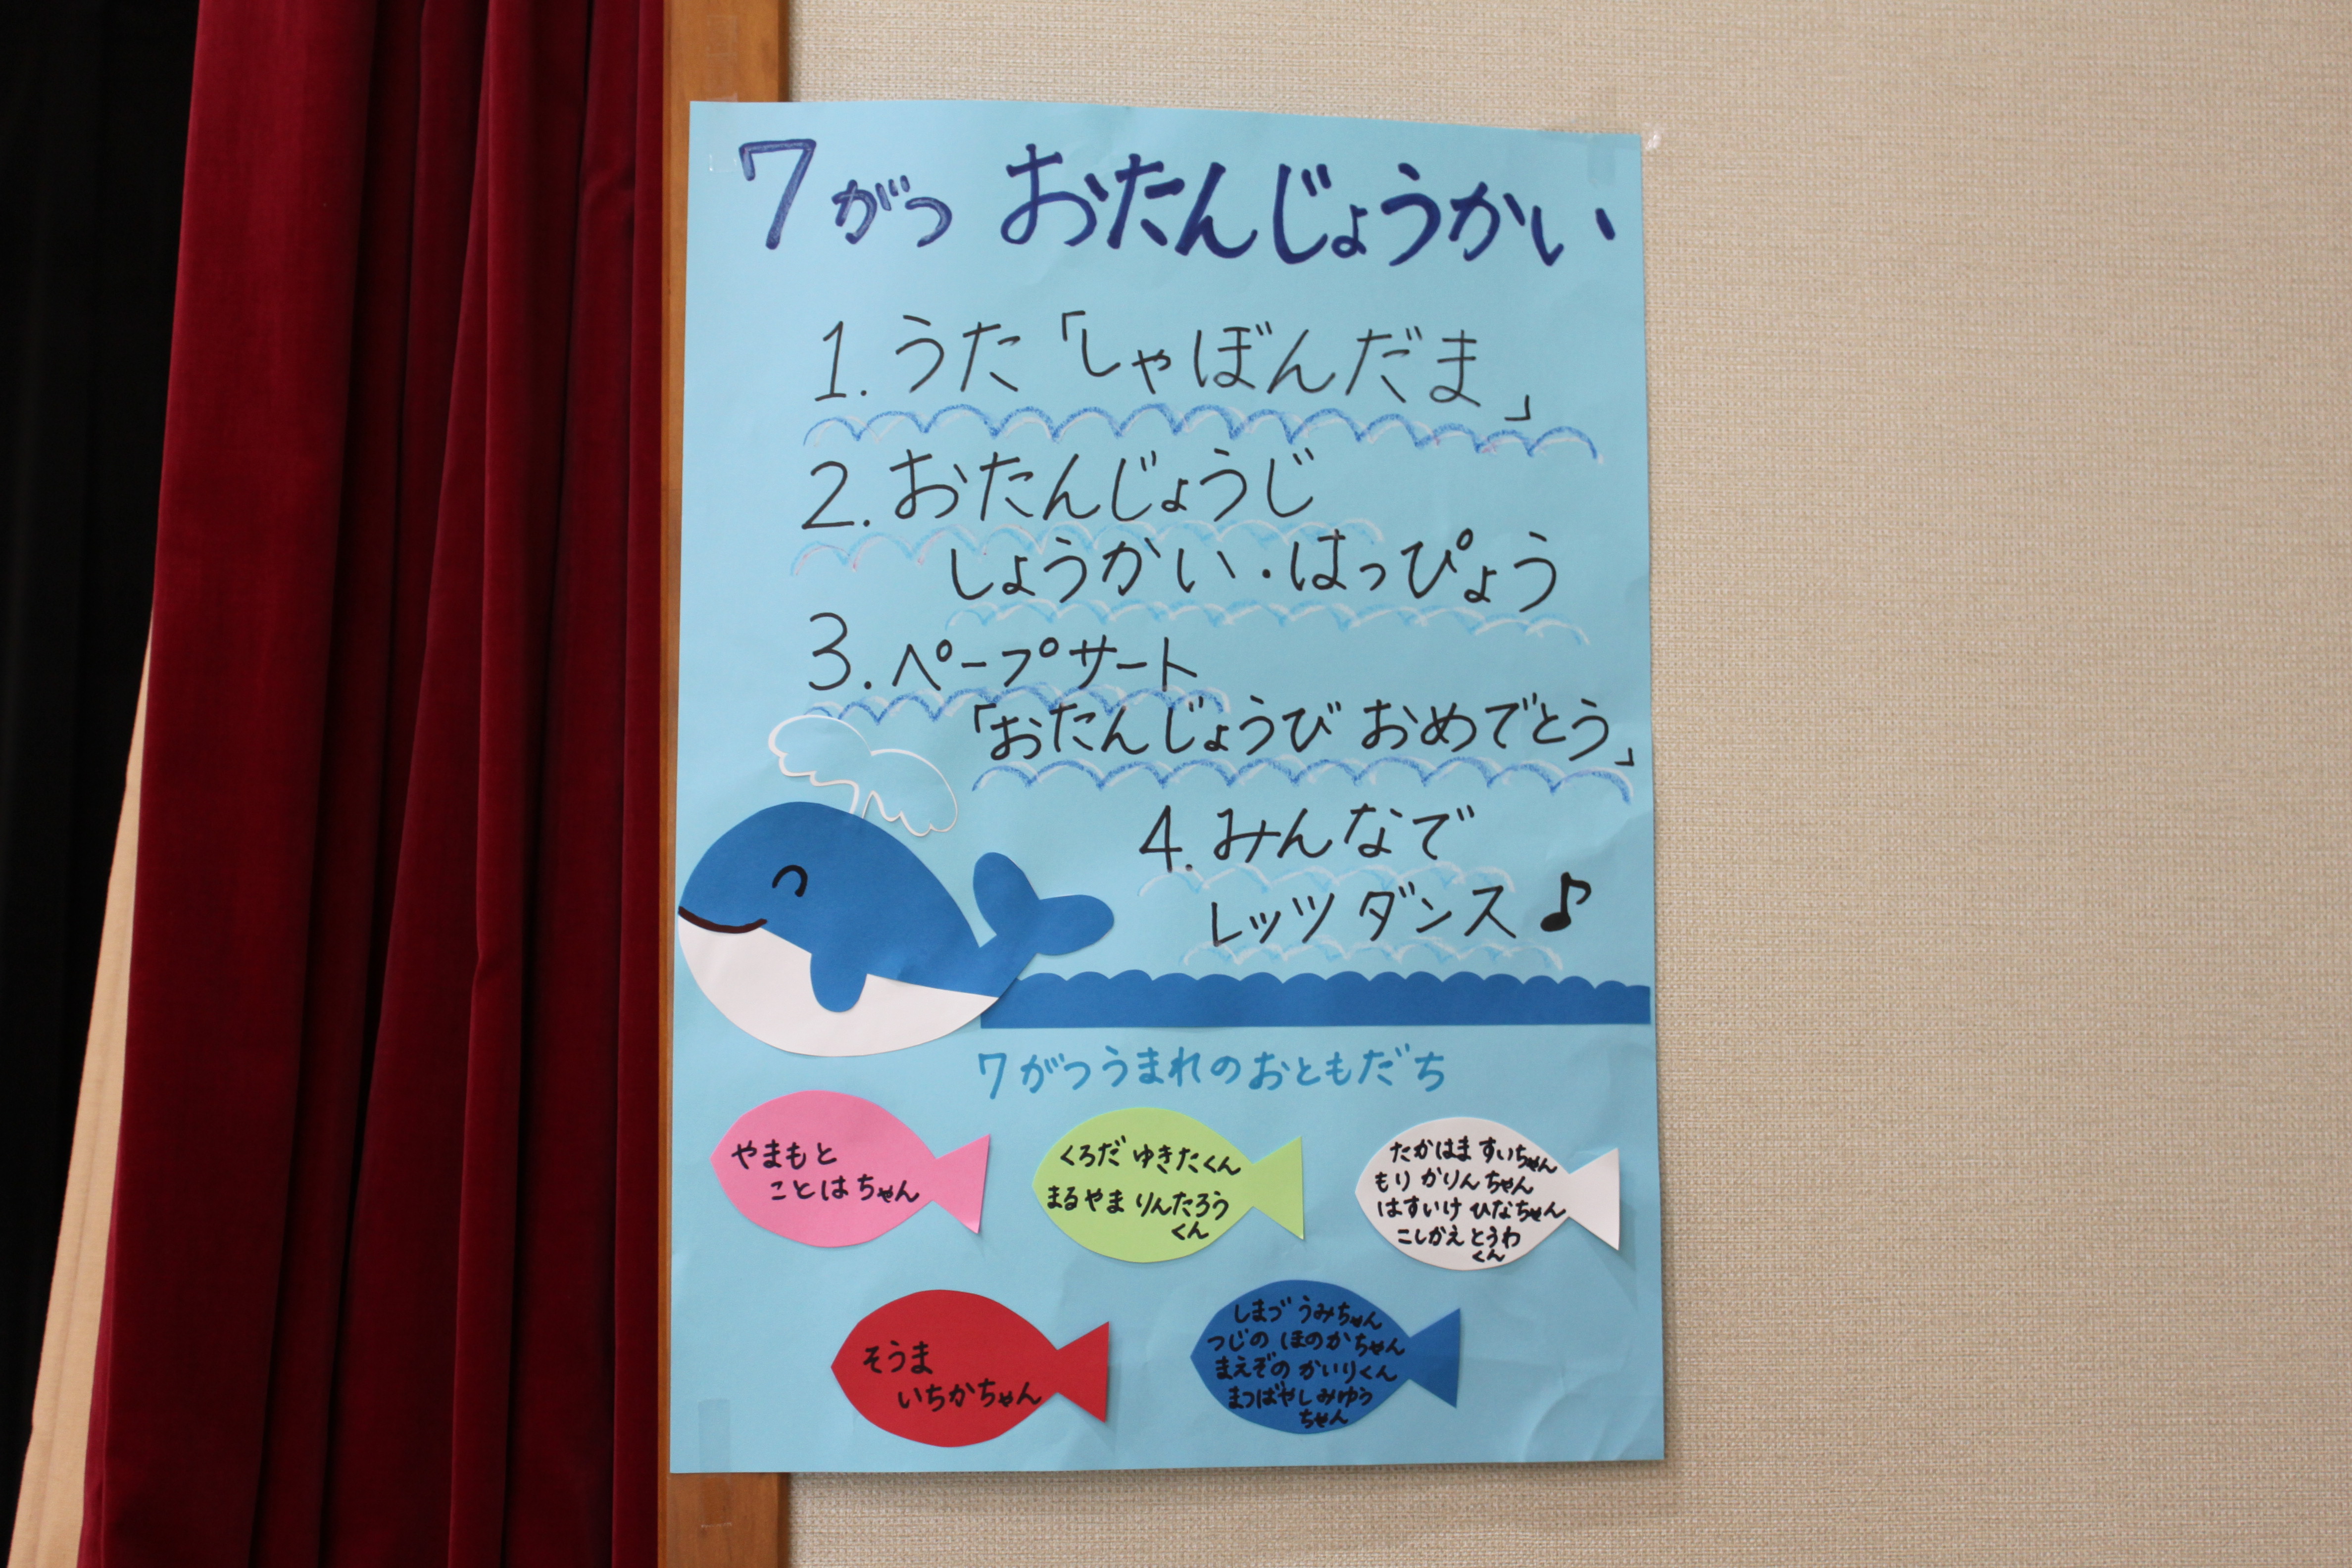 7がつ おたんじょうかい
1. うた「しゃぼんだま」
2. おたんじょうじ
しょうかい・はっぴょう
3. ペープサート
「おたんじょうび おめでとう」
4. みんなで
レッツ ダンス♪
7がつうまれのおともだち
やまもと
ことはちゃん
くろだ ゆきたくん
まるやま りんたろう
くん
たかはま すいちゃん
もり かりんちゃん
はすいけ ひなちゃん
こしかえ とうわ
くん
そうま
いちかちゃん
しまづ うみちゃん
つじの ほのかちゃん
まえぞの かいりくん
まつばやし みゆう
ちゃん